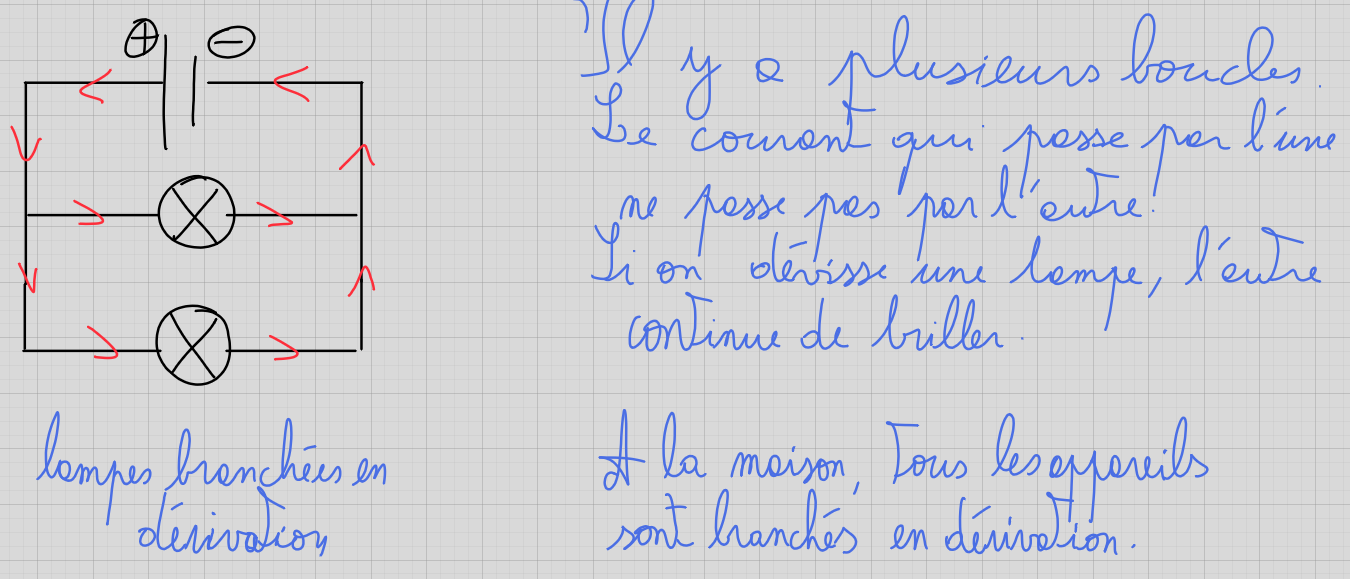 + -
Il y a plusieurs boucles.
Le courant qui passe par l'une
ne passe pas par l'autre.
Si on dévisse une lampe, l'autre
continue de briller.
lampes branchées en
dérivation
A la maison, tous les appareils
sont branchés en dérivation.